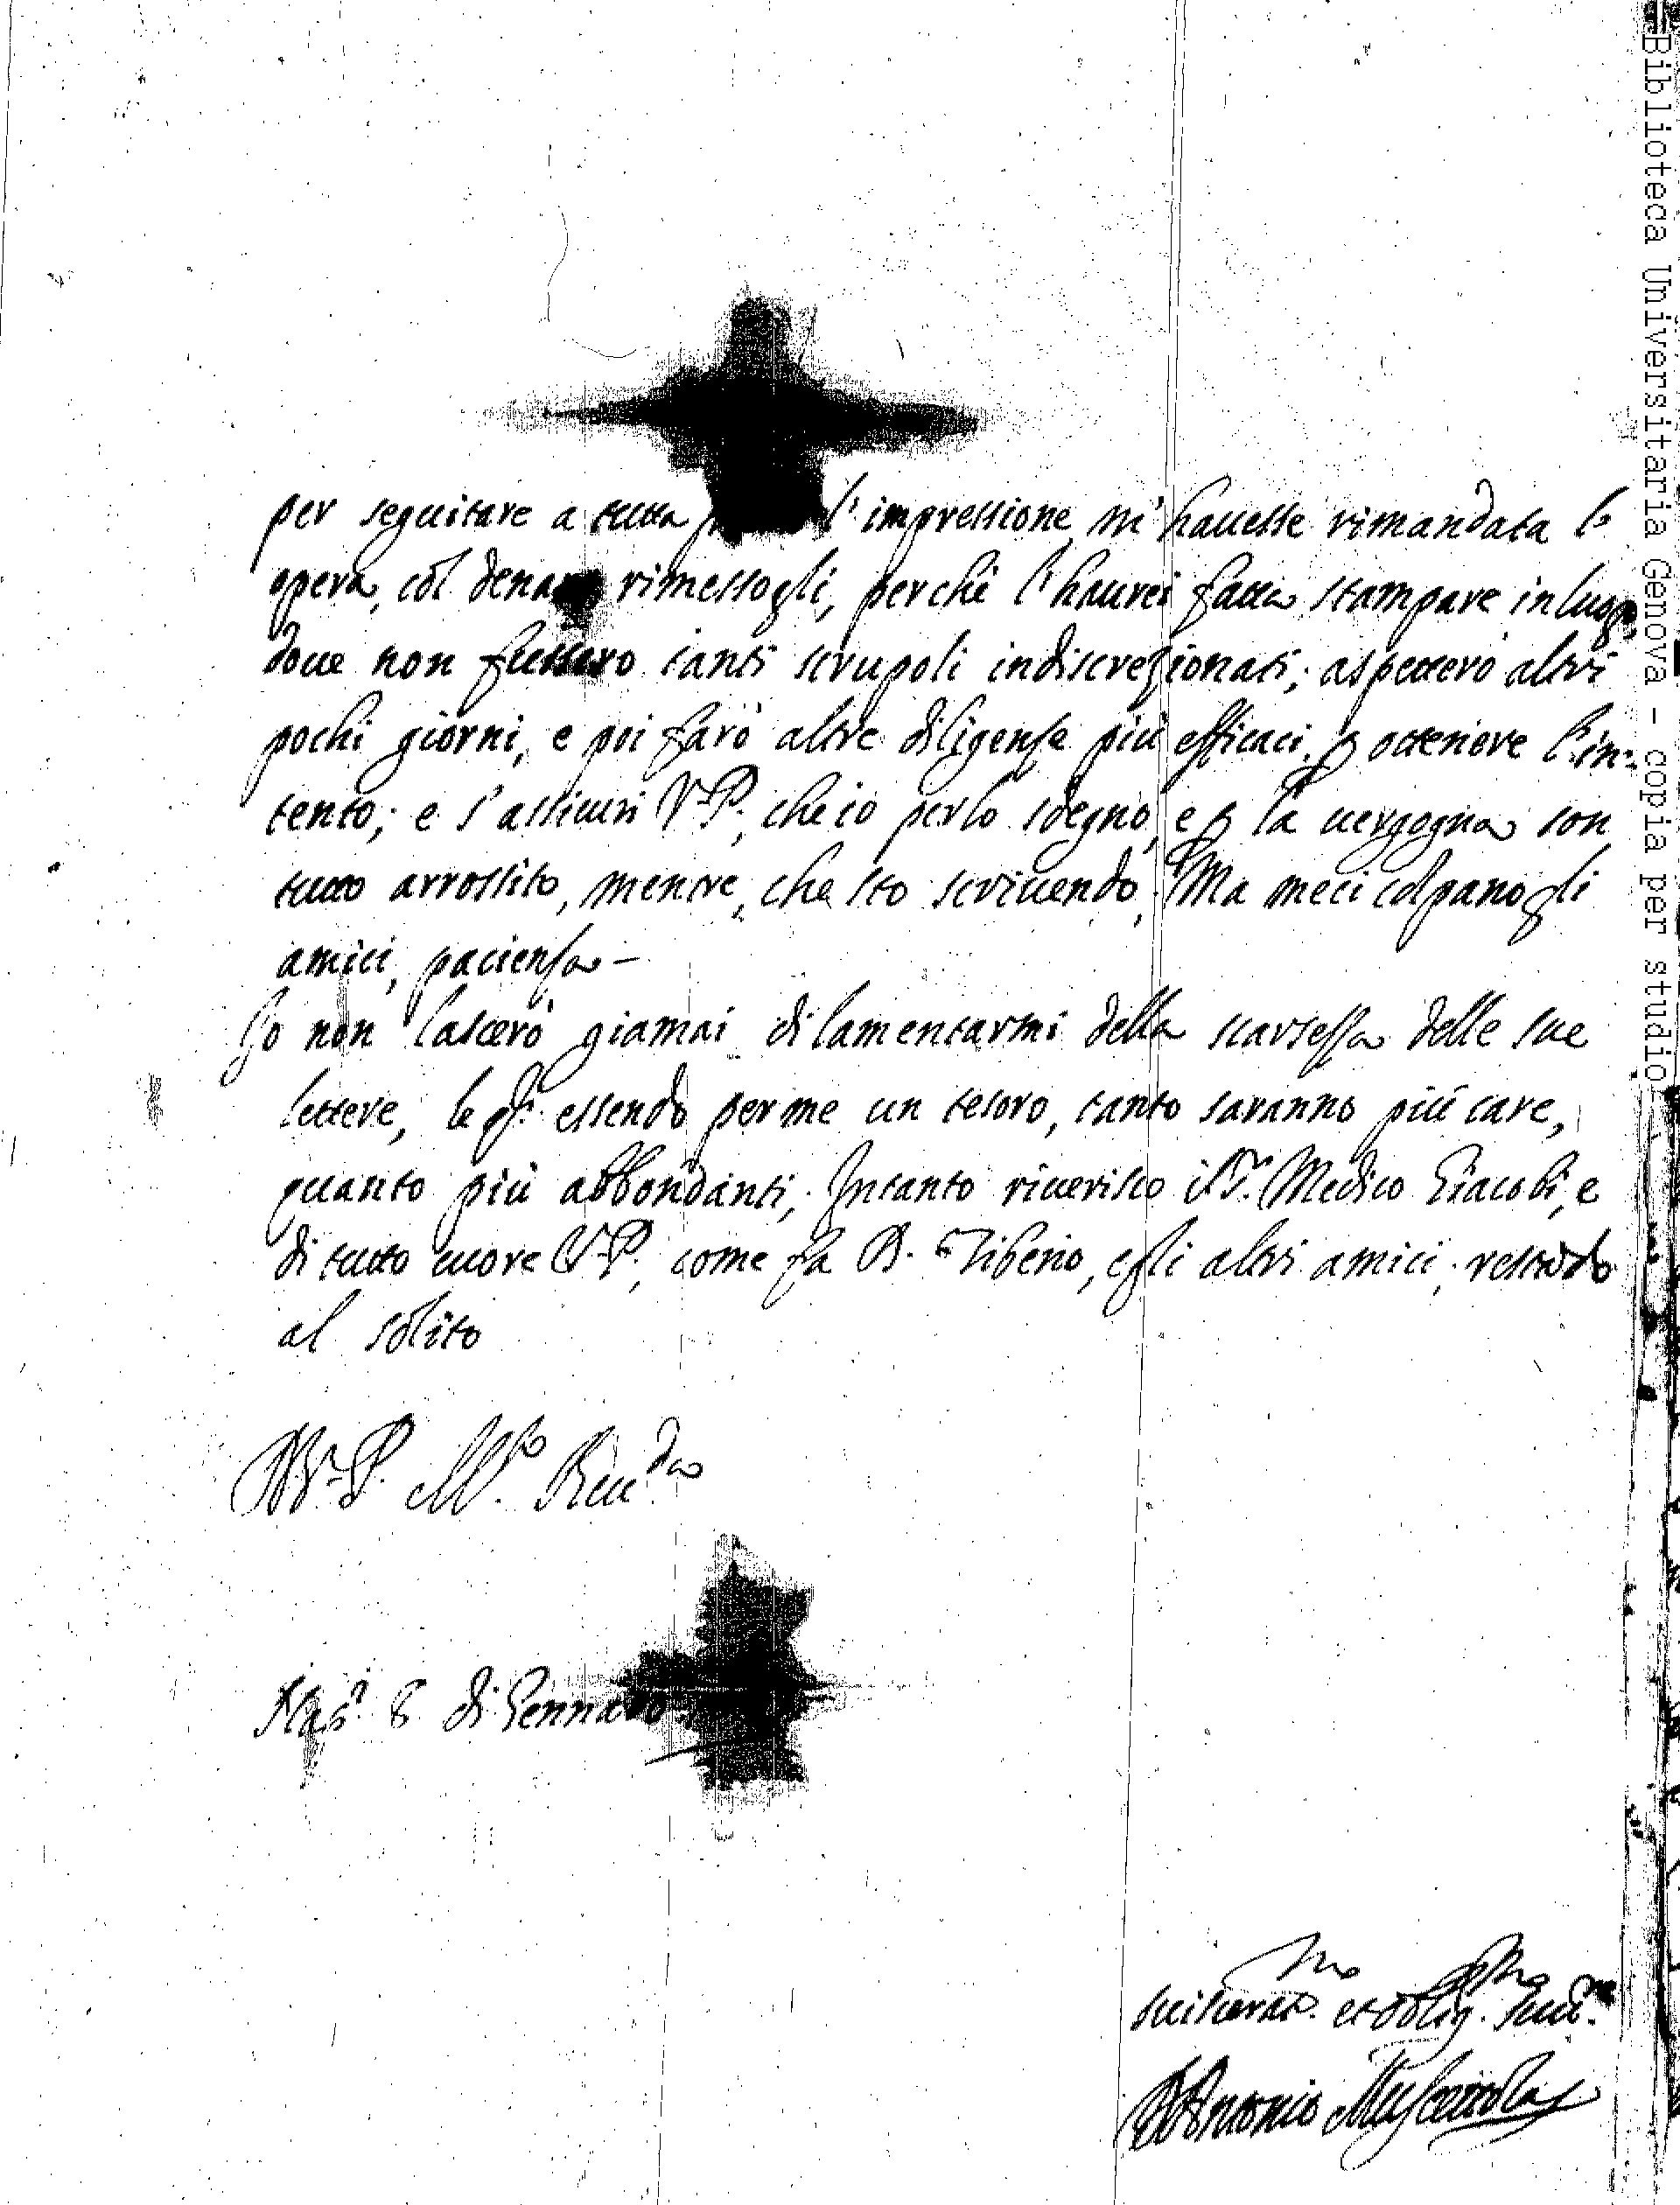 per seguitare a tutta l'impressione, m'hauesse rimandata l'
opera, col denaro rimessogli, perche l'haurei fatta stampare in luogo,
doue non fussero tanti scrupoli indiscrezionati; aspetterò altri
pochi giorni, e poi farò altre diligenze più efficaci p ottenere l'in=
tento; e s'assicuri V.P., che io per lo sdegno, e p la uergogna son
tutto arrossito, mentre, che sto scriuendo; Ma meci colpano gli
amici, pacienza –
Io non lascerò giamai di lamentarmi della scarsezza delle sue
lettere, le qli essendo per me un tesoro, tanto saranno più care,
quanto più abbondanti; Intanto riuerisco il Sr. Medico Giacobi, e
di tutto cuore V.P., come fa D. Tiberio, e gli altri amici; restando
al solito
Di V.P. M.to Reu.da
Nap. 8 di Gennaro
suiscerat.mo et oblig.mo Seru.re
D. Antonio Muscettola
Biblioteca Universitaria Genova - copia per studio